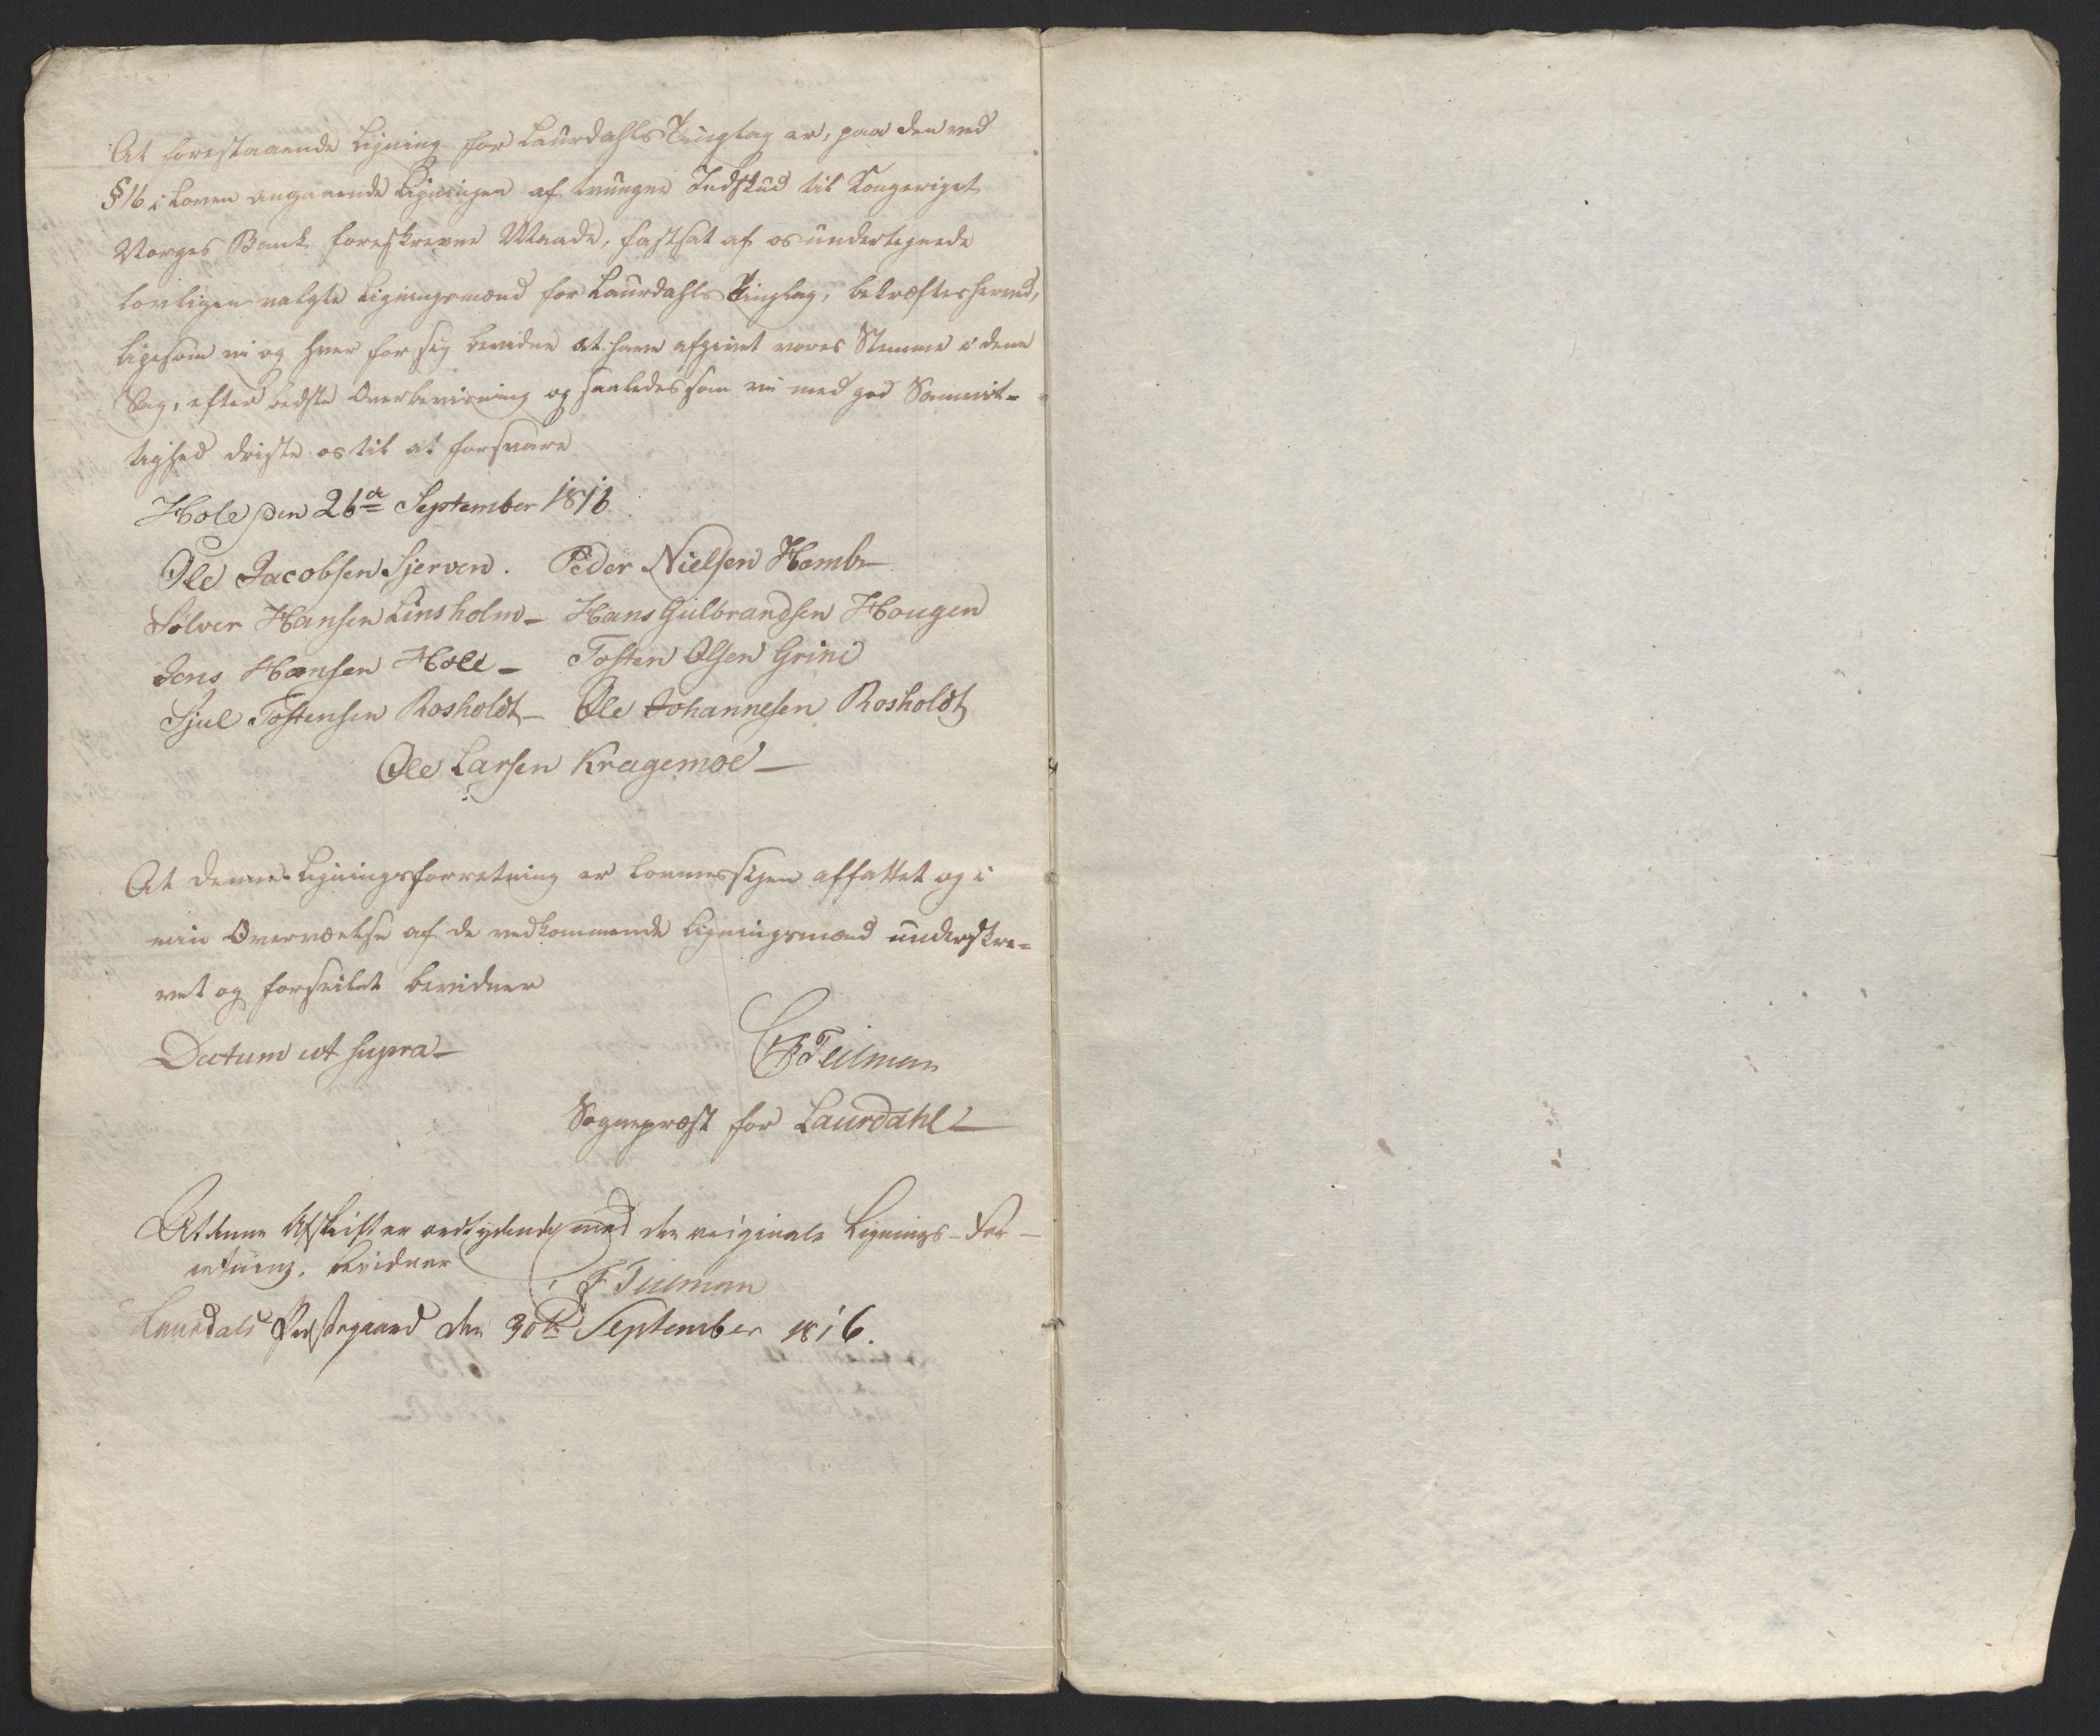 At forestaaende Ligning for Laurdahls Tinglag er, paa den ved
§ 16 i Loven angaaende Ligningen af tvungne Indskud til Kongeriget
Norges Bank foreskrevne Maade, fastsat af os undertegnede
lovligen valgte Ligningsmænd for Laurdahls Tinglag, bekræftes herved,
ligesom vi og hver for sig bevidne at have afgivet vores Stemme i denne
Sag, efter bedste Overbeviisning og saaledes som vi med god Samvit-
tighed driste os til at forsvare
Hole den 26de September 1816
Ole Jacobsen Sjerven. Peder Nielsen Hemb
Sølver Hansen Linsholm - Hans Gulbrandsen Hougen
Jens Hansen Hole - Tosten Olsen Grini
Sjul Tostensen Rosholdt - Ole Johannesen Rosholdt
Ole Larsen Kragemoe -
At denne Ligningsforretning er lovmessigen affattet og i
min Overværelse af de vedkommende Ligningsmænd underskre-
vet og forseilet bevidner
Datum ut supra - F Teilman
Sognepræst for Laurdahl
At denne Afskrift er eenslydende med den originale Lignings-For-
retning, bevidner
F Teilman
Laurdals Præstegaard den 30te September 1816.